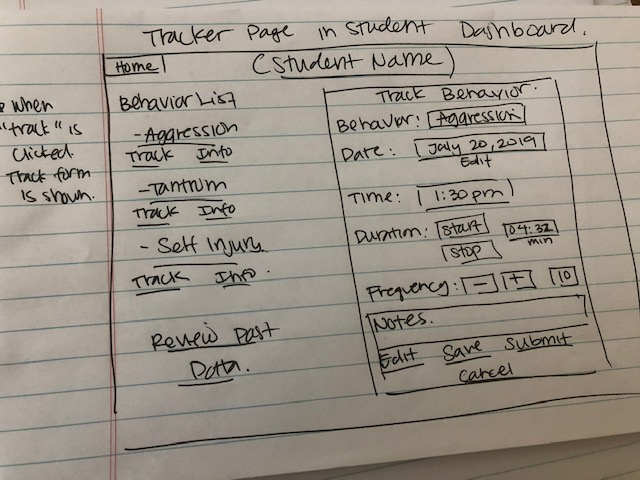 Tracker Page in Student Dashboard.
Home
(Student Name)
when
"track" is
clicked.
Track form
is shown.
Behavior List
- Aggression
Track Info
- Tantrum
Track Info
- Self Injury
Track Info.
Review Past
Data.
Track Behavior.
Behavior: Aggression
Date: July 20, 2019
Edit
Time: 1:30 pm
Duration: start 04:32
stop min
Frequency: - + 10
Notes.
Edit Save Submit
Cancel